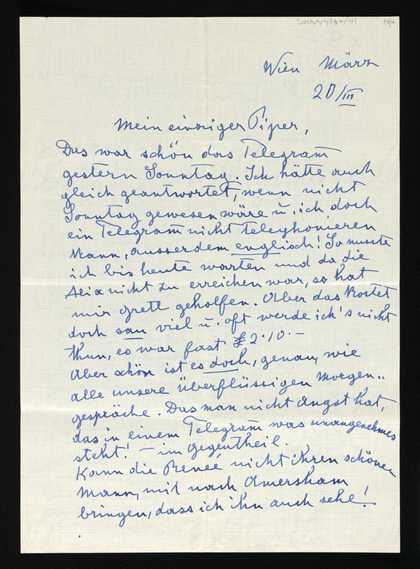 Wien März
20/III
Mein einziger Piper,
Das war schön das Telegram
gestern Sonntag. Ich hätte auch
gleich geantwortet, wenn nicht
Sonntag gewesen wäre u. ich doch
ein Telegram nicht telephonieren
kann, ausserdem englisch! So musste
ich bis heute warten und da die
nicht zu erreichen war, so hat
mir Gretl geholfen. Aber das kostet
doch sau viel u. oft werde ich's nicht
thun, es war fast £ 2.10.-
Aber schön ist es doch, genau, wie
alle unsere überflüssigen Morgen..
gespräche. Das man nicht Angst hat,
das in einem Telegram was unangenehmes
steht! – im Gegentheil.
Kann die Reneé nicht ihren schönen
Mann, mit nach Amersham
bringen, dass ich ihn auch sehe!